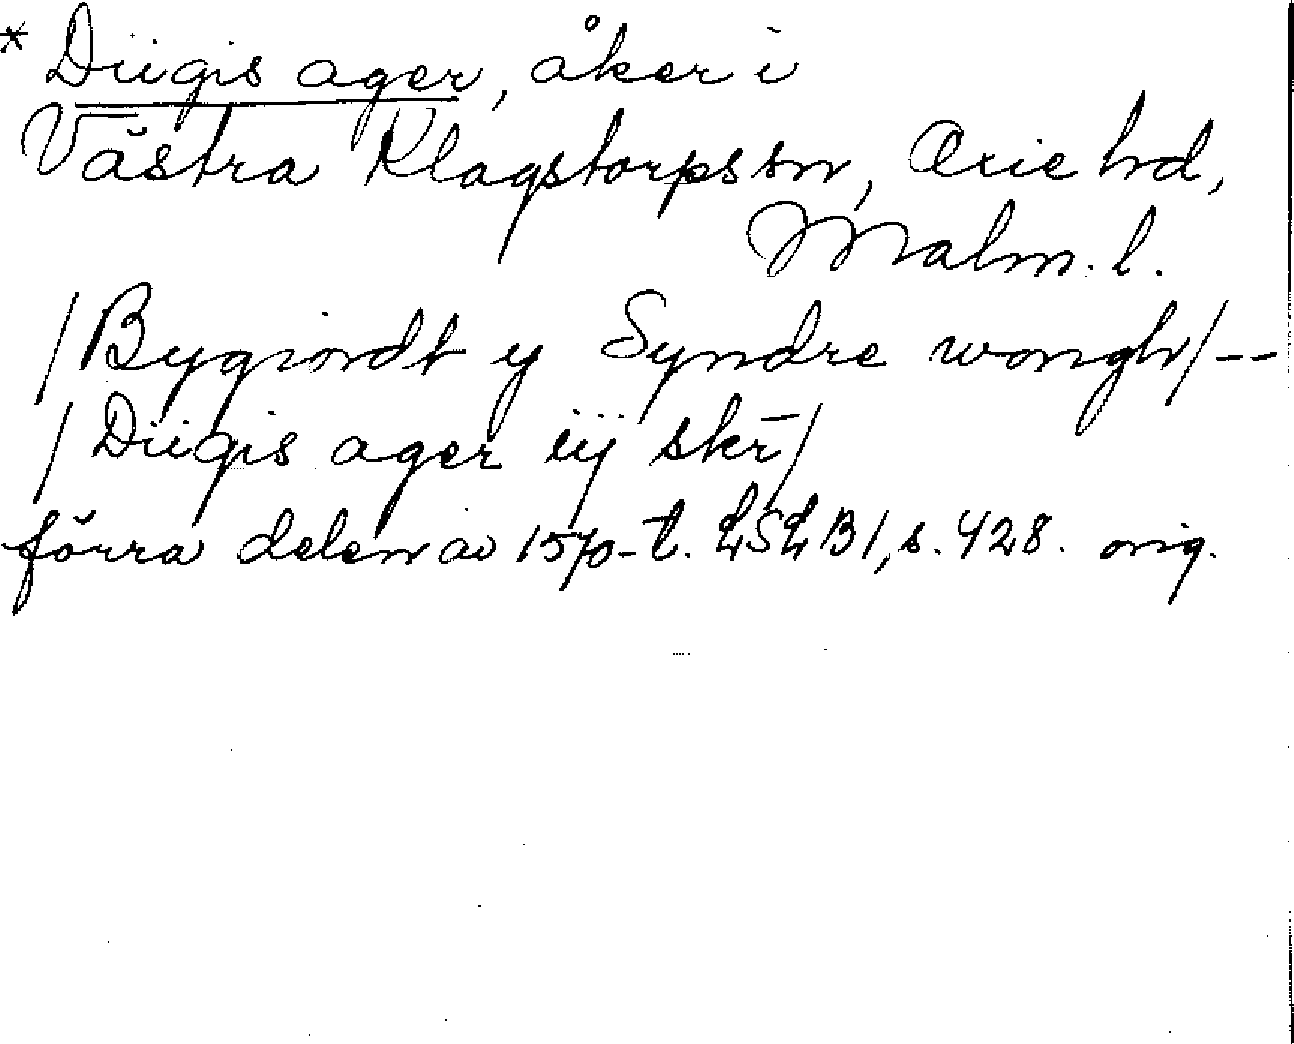 * Diigis ager, åker i
Västra Klagstorps sn, Oxie hd,
Malm. l.
/Bygiordt y Syndre wongh/--
/Diigis ager iij skr̄/
förra delen av 1570-t. LSLB1, s. 428. orig.